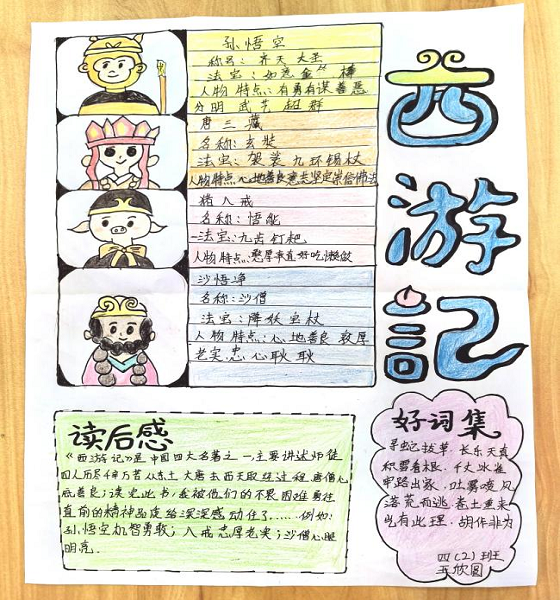 西游記
孙悟空
称号：齐天大圣
法宝：如意金箍棒
人物特点：有勇有谋善恶
分明武艺超群
唐三藏
名称：玄奘
法宝：袈裟九环锡杖
人物特点：心地善良意志坚定崇信佛法
猪八戒
名称：悟能
法宝：九齿钉耙
人物特点：憨厚率直好吃懒做
沙悟净
名称：沙僧
法宝：降妖宝杖
人物特点：心地善良敦厚
老实忠心耿耿
读后感
《西游记》是中国四大名著之一，主要讲述师徒
四人历尽千辛万苦从东土大唐去西天取经过程，唐僧心
底善良；读完此书，我被他们的不畏困难勇往
直前的精神品质给深深感动住了……例如：
孙悟空机智勇敢；八戒忠厚老实；沙僧心眼
明亮．
好词集
寻蛇拔草．长乐天真
积雪看根．千丈冰崖
审路出家．吐雾喷风
落荒而逃．卷土重来
岂有此理．胡作非为
四（2）班